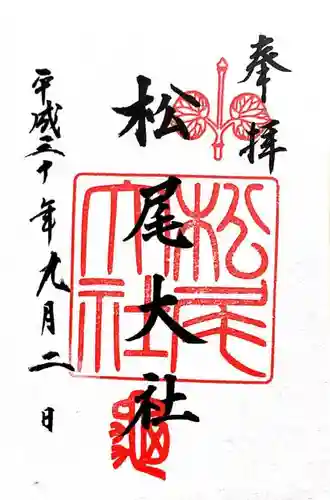 奉拝
松尾大社
平成三十年九月二日
松尾
大社